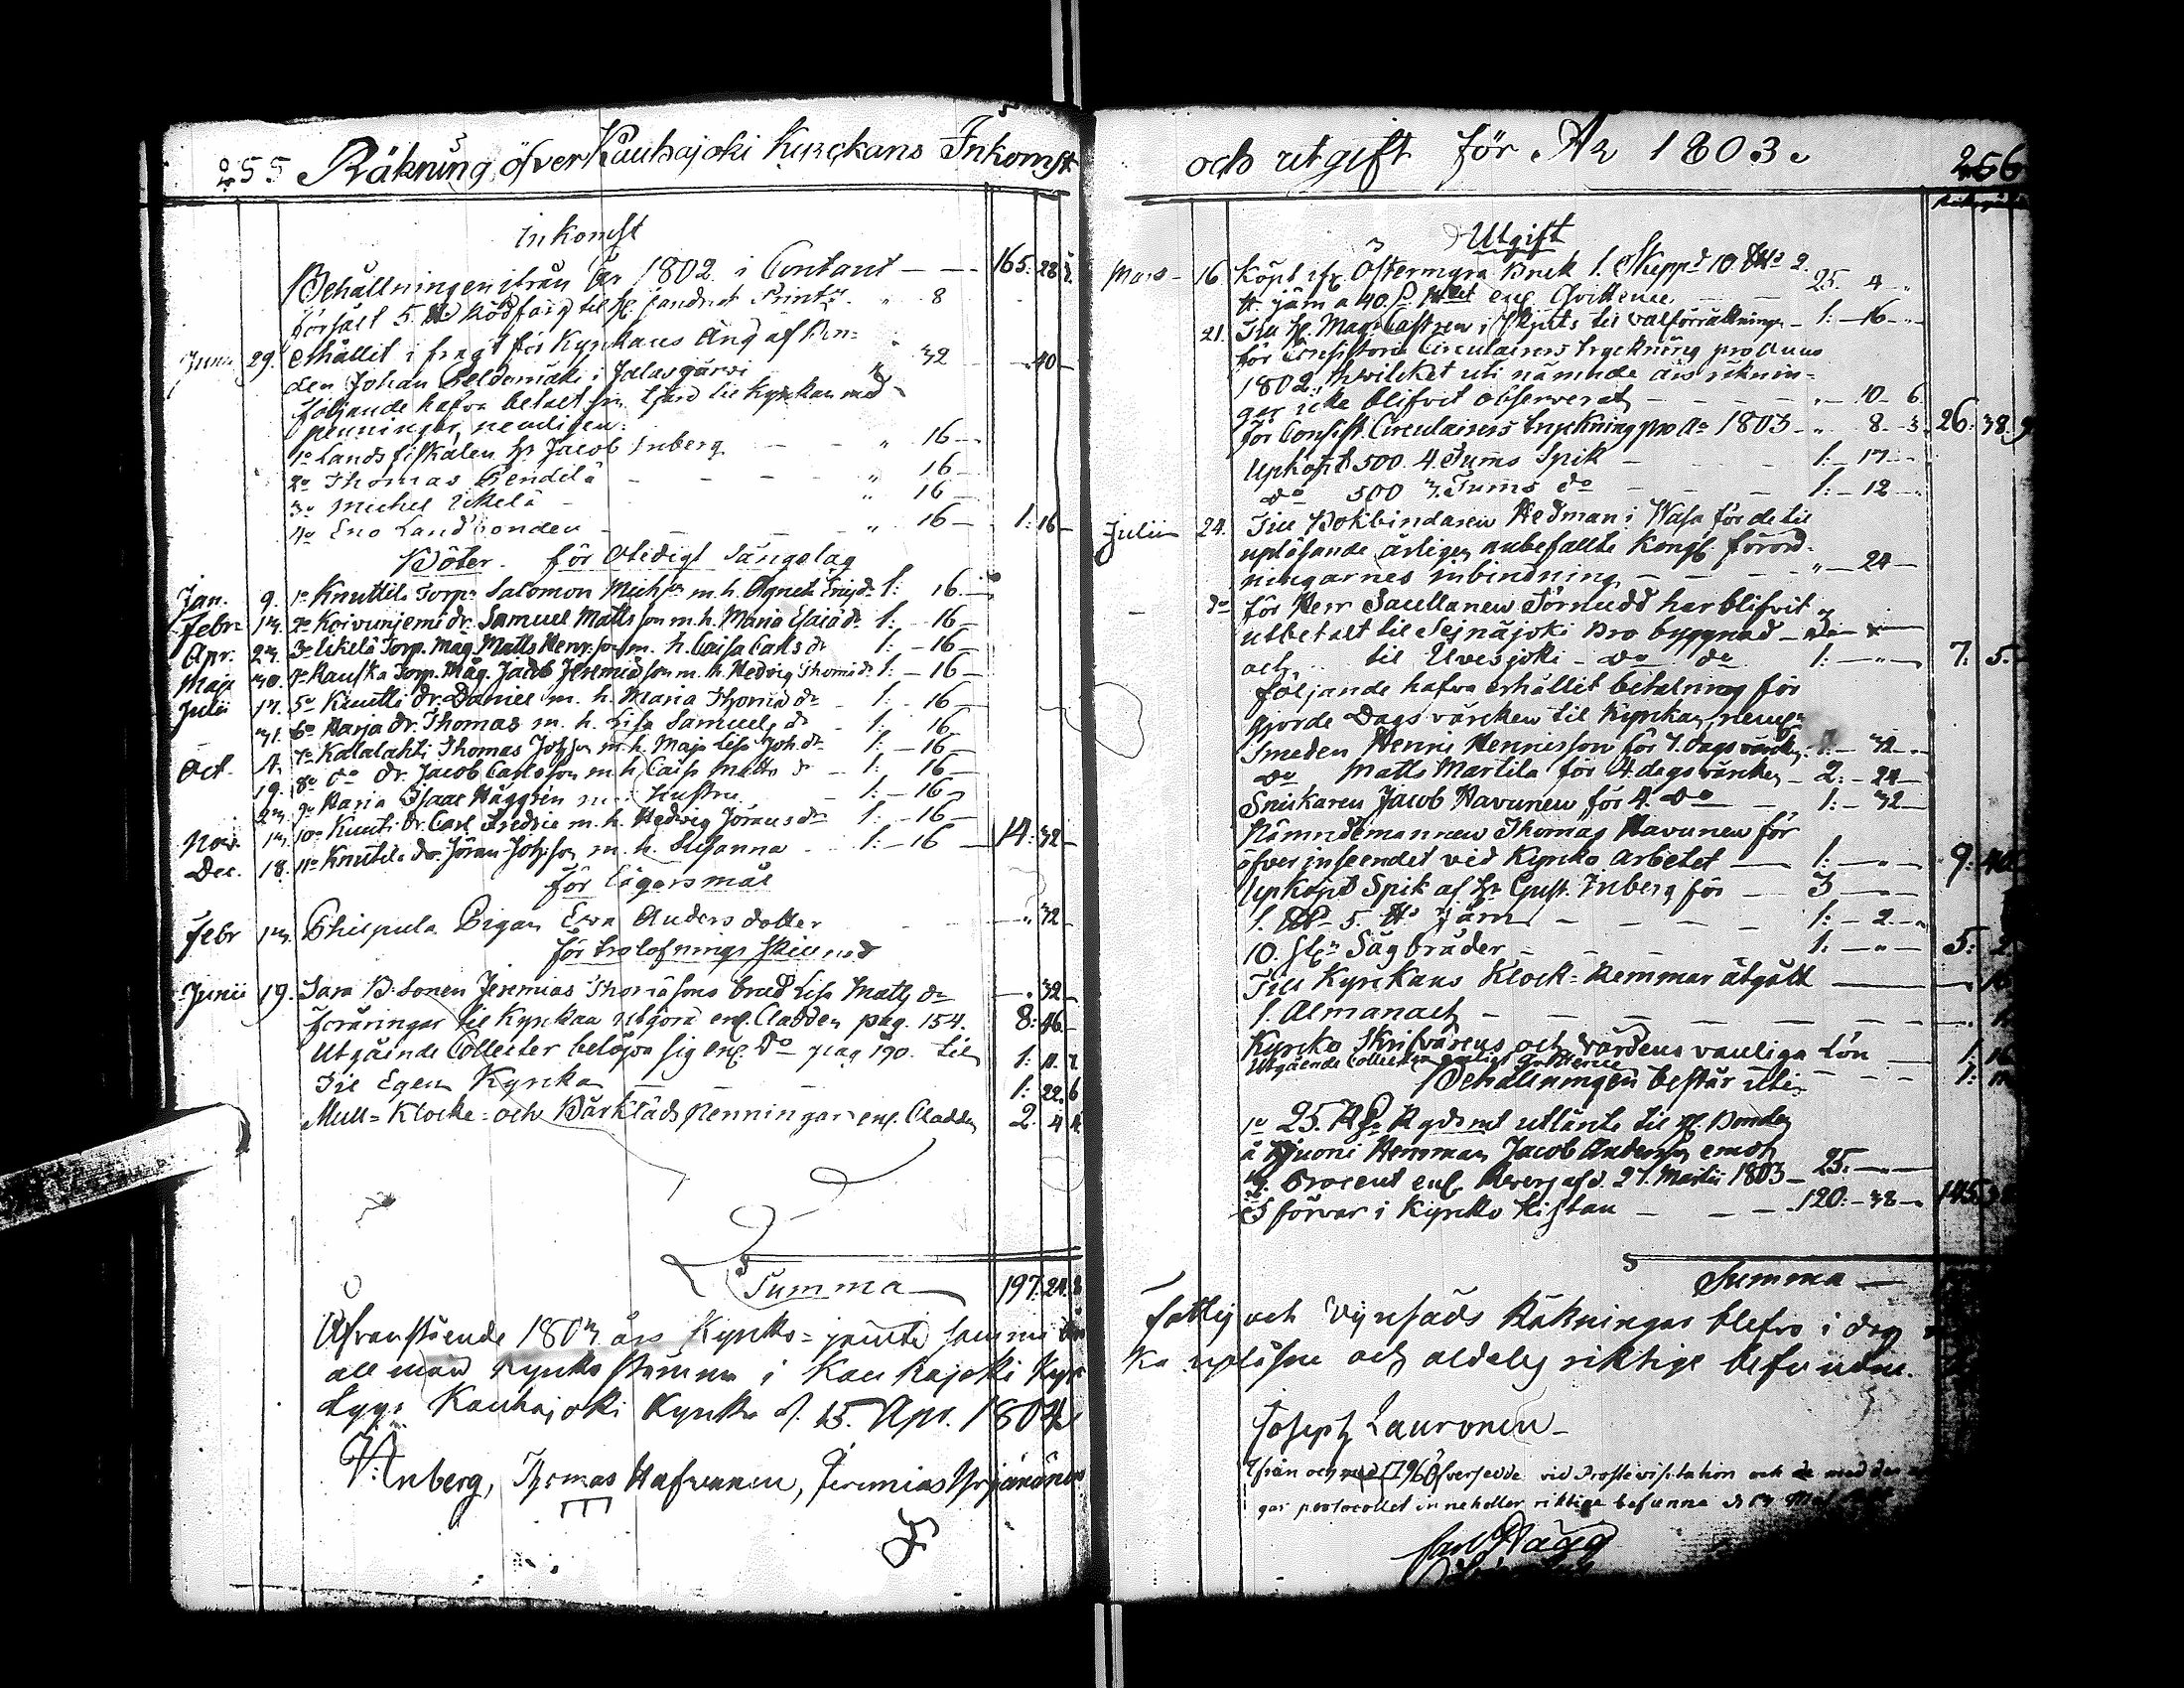 255 Räkning öfver Kauhajoki Kyrckans Inkomst
Inkomst
Behållningen ifrån År 1802 i Contant — — 165. 28.
försålt 5 ℔ Rödfärg til " 8
Junii 29. erhållit i fragt för Kyrkans Äng af Bon=
den Johan Peldomäki i Jalasjärvi " 32 — 40 —
följande hafva betalt sin tjärd til Kyrckan med
penningar, nemligen:
1o Landsfiskalen Hr Jacob Inberg — — " 16 —
2o Thomas Pendilä — — — " 16 —
3o Michel Ikelä — " 16 —
4o Eno Landbonden — — — " 16 — 1: 16 —
Böter för Oledigt Sängelag
Jan. 9. 1o Knuttila Torp. Salomon Michs. m. h. Agneta 1: 16 —
Febr. 13. 2o Koivuniemi dr. Samuel Mattsson m. h. Maria Esaiæ dr 1: — 16 —
Apr. 23. 3o Ikelä Torp. Måg Matts Henr.son m. h. Caisa Carls dr 1: — 16 —
Maji 30. 4o Rauska Torp. Måg. Jacob Jeremiæson m. h. Hedvig Thomæ dr 1: — 16 —
Julii 17. 5o Knutti dr. Daniel m. h. Maria Thomæ dr 1: — 16 —
31. 6o Harja dr. Thomas m. h. Lisa Samuels dr 1: 16 —
Oct. 4. 7o Katalahti Thomas Johsson m. h. Maja Lisa Joh. dr 1: — 16 —
19. 8o do dr. Jacob Carlsson m. h. Caisa Matts dr — 1: 16 —
23. 9o Haria Isaac Häggrén m. Hustru — 1: — 16 —
Nov. 13. 10o Knuti dr. Carl Fredric m. h. Hedvig Jörans dr 1: — 16 —
Dec. 18. 11o Knutila dr. Jöran Johsson m. h. Susanna 1: — 16 — 14: 32 —
för Lägersmål
Febr 13. Pigan Eva Anders dotter — " 32 —
för trolofnings skillnad
Junii 19. Sara B. Sonen Jeremias Thomæsons brud Lisa Matts dr — " 32 —
föräringar til Kyrckan utgöra enl. Cladden pag. 154. 8: 46 —
Utgående Collecter belöpa sig enl. do pag 190. til 1: 11.
Til Egen Kyrcka — — — 1: 22. 6
Mull= Klocke= och Bårkläds Penningar enl. Cladden 2. 4
Summa 197. 24.
Ofvanstående 1803 års Kyrcko= jemte samma
allmän Kyrcko stämma i Kauhajoki Kyr
Kauhajoki Kyrcka d. 15. Apr. 1804
Inberg, Thomas Hafvunen, Jeremias Yrjänänen
och utgift för År 1803. 256
Utgift
Mars — 16 Köpt ifr. Östermyra Bruk 1. Skepp 10. ℔ 2.
℔ järn a 40. enl. Qvittence — — 25. 4 "
21. Till Hr Mag. Castren i Skjuts til Valförrättninge — 1: — 16 — "
för Consistorii Circulairers tryckning pro Anno
1802. hvilcket uti nämnde års räknin=
gar icke blifvit observerat — — — " — 10 — 6
för Consist. Circulairers tryckning pro Ao 1803 — " 8. — 3. 26. 38.
Upköpt 500. 4. Tums Spik — — — 1: — 17 —
do 500 3. Tums do — — 1: — 12 — "
Julii 24. Till Bokbindaren Hedman i Wasa för de til
upläsande årligen anbefallte Kongl. förord=
ningarnes inbindning — — — " — 24 —
do för Herr Sacellanen Törnudd har blifvit
utbetalt til Seinäjoki Bro byggnad —
och til Ilvesjoki — do do 1: — " — 7: 5. —
följande hafva erhållit betalning för
gjorde Dagsvärcken til Kyrckan, neml.
Smeden Henric Henricsson för dagsvärcken — 32 —
do Matts Martila för 4. dagsvärcken — 2: — 24 —
Snickaren Jacob Havunen för 4. do — 1: — 32 —
Nämndemannen Thomas Havunen för
öfver inseendet vid Kyrcko Arbetet — 1: — " — 9: 40
Upköpt Spik af Hr Gust. Inberg för — 3 — —
5. ℔ Järn — — — — 1: — 2. — "
10. st. Sågbräder — — 1: — " — 5: 2.
Till Kyrckans Klock= Remmar åtgått —
1. Almanach — — — — —
Kyrcko Skrifvarens och Värdens vanliga Lön — 1: 16
Utgående Collecter enligt Qvittence — — —
Behållningen består uti
1o 25. Rd. Rgds mt utlånte til Bonden
å Hemman Jacob Andersson emot
Procent enl. Revers af d. 27. Martii 1803 — 25. — " —
I förvar i Kyrcko Kistan — — — 120. — 38 — " 145.
Summa —
fattig och Vijnsäds Räkningar blefvo i dag
upläsne och aldeles riktige befundne.
Joseph Lauronen
Ifrån och med 196 öfversedde vid Prostevisitation och
gar protocollet innehåller riktige befunna
Carl Hägg